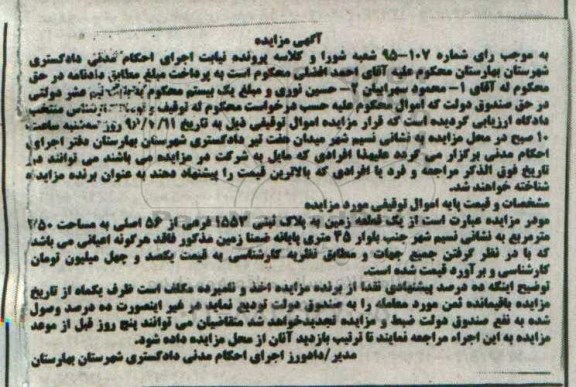 آگهی مزایده
به موجب رای شماره ۱۰۷-۹۵ شعبه شورا و کلاسه پرونده نیابت اجرای احکام مدنی دادگستری
شهرستان بهارستان محکوم علیه آقای احمد افضلی محکوم است به پرداخت مبلغ مطابق دادنامه در حق
محکوم له آقای ۱- محمود سهرابیان ۲- حسین نوری و مبلغ یک بیستم محکوم به بابت نیم عشر دولتی
در حق صندوق دولت که اموال محکوم علیه حسب درخواست محکوم له توقیف و توسط کارشناس منتخب
دادگاه ارزیابی گردیده است که قرار مزایده اموال توقیفی ذیل به تاریخ روز سه‌شنبه ساعت
۱۰ صبح در محل مزایده به نشانی نسیم شهر میدان هفت تیر دادگستری شهرستان بهارستان دفتر اجرای
احکام مدنی برگزار می گردد علیهذا افرادی که مایل به شرکت در مزایده می باشند می توانند در
تاریخ فوق الذکر مراجعه و فرد یا افرادی که بالاترین قیمت را پیشنهاد دهند به عنوان برنده مزایده
شناخته خواهند شد.
مشخصات و قیمت پایه اموال توقیفی مورد مزایده
مورد مزایده عبارت است از یک قطعه زمین به پلاک ثبتی ۱۵۵۳ فرعی از ۵۶ اصلی به مساحت
مترمربع به نشانی نسیم شهر جنب بلوار ۴۵ متری پایانه ضمنا زمین مذکور فاقد هرگونه اعیانی می باشد
که با در نظر گرفتن جمیع جهات و مطابق نظریه کارشناسی به قیمت یکصد و چهل میلیون تومان
کارشناسی و برآورد قیمت شده است.
توضیح اینکه ده درصد پیشنهادی نقدا از برنده مزایده اخذ و نامبرده مکلف است ظرف یکماه از تاریخ
مزایده باقیمانده ثمن مورد معامله را به صندوق دولت تودیع نماید در غیر اینصورت ده درصد وصول
شده به نفع صندوق دولت ضبط و مزایده تجدیدخواهد شد متقاضیان می توانند پنج روز قبل از موعد
مزایده به این اجراء مراجعه نمایند تا ترتیب بازدید آنان از محل مزایده داده شود.
مدیر/دادورز اجرای احکام مدنی دادگستری شهرستان بهارستان